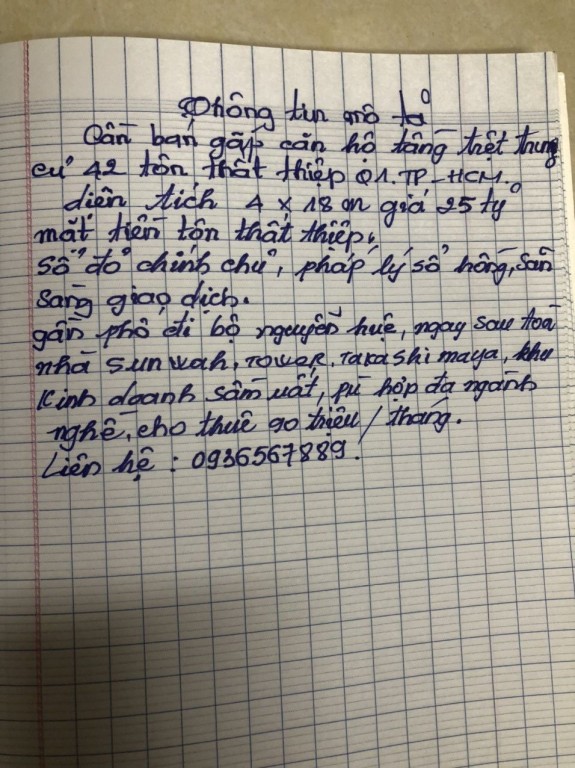 Thông tin mô tả
Cần bán gấp căn hộ tầng trệt trung
cư 42 tôn thất thiệp Q1. TP-HCM.
diên tích 4 x 18 m giá 25 tỷ
mặt tiền tôn thất thiệp,
Sổ đỏ chính chủ, pháp lý sổ hồng, sẵn
sang giao dịch.
gần phố đi bộ nguyễn huệ, ngay sau toà
nhà sunwah, TOWER, TAKA Shi maya, khu
Kinh doanh sầm uất, pù hợp đa ngành
nghề, cho thuê 90 triệu / tháng.
Liên hệ : 0936567889.